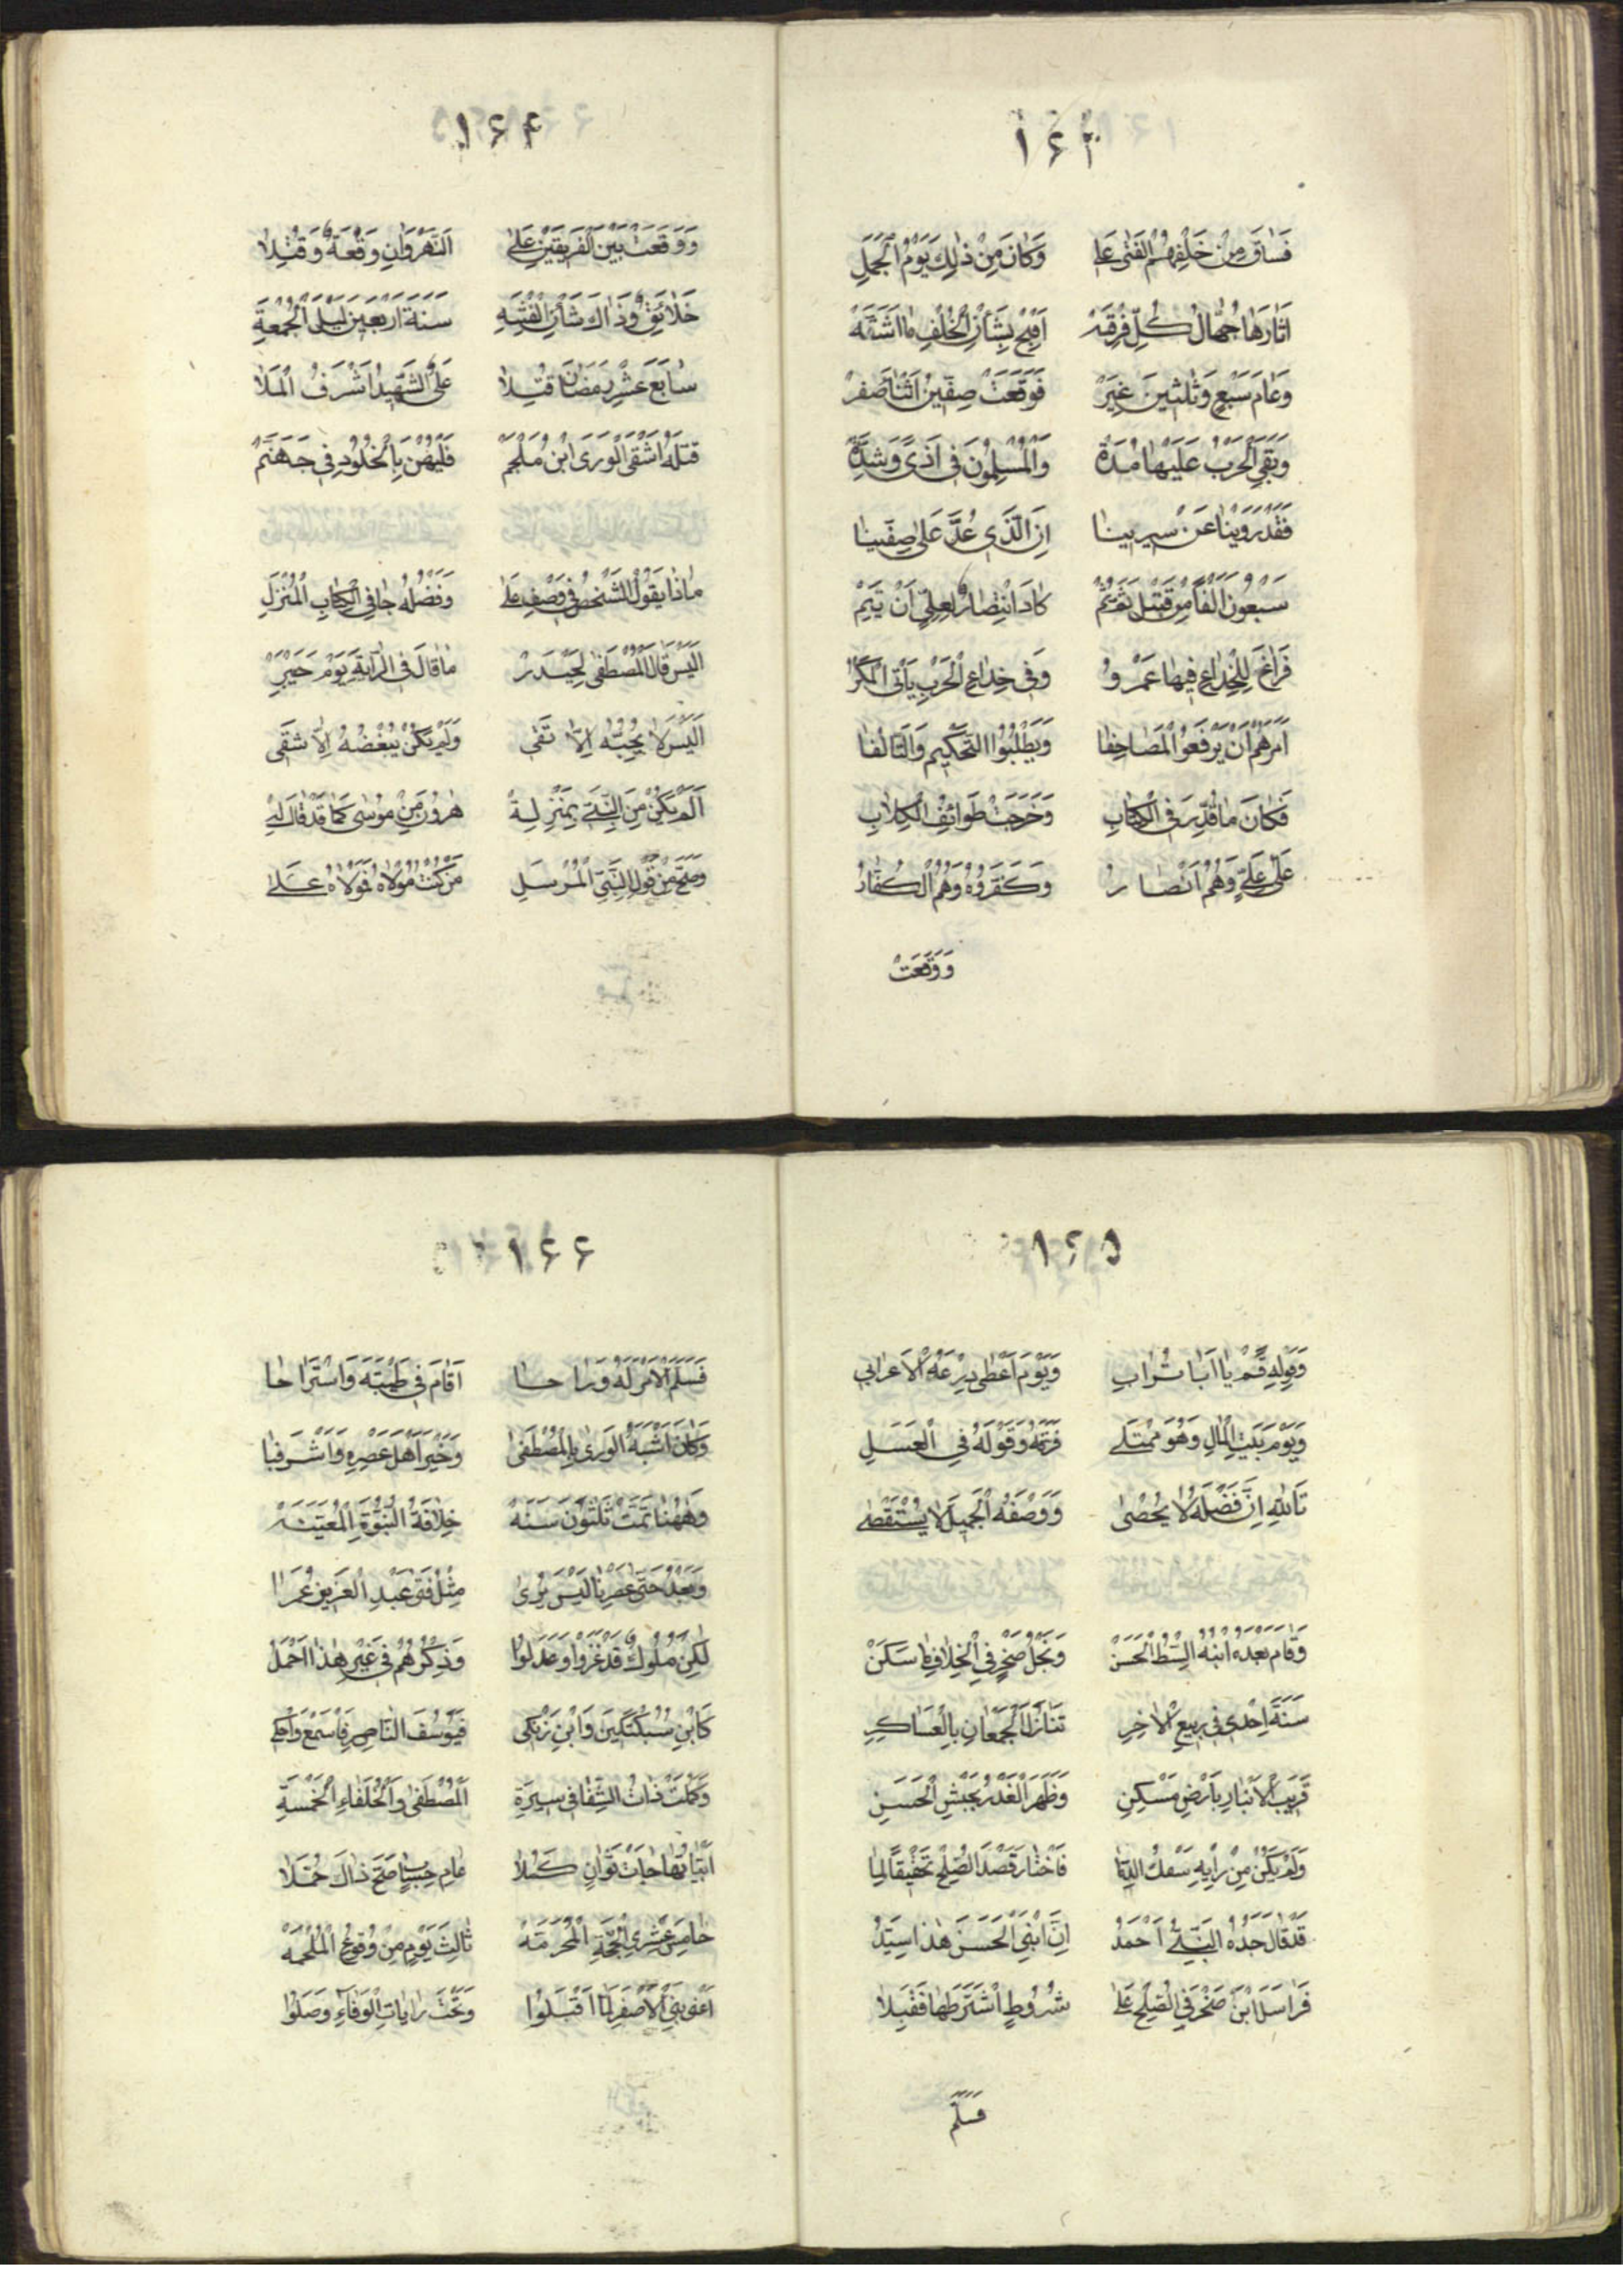 ١٤٣
فَسَاقَ مِنْ خَلْفِهِمُ الْفَتٰى عَلِى وَكَانَ مِنْ ذٰلِكَ يَوْمُ الْجَمَلِ
اَثَارَهَا جُهَّالُ كُلِّ فِرْقَةْ اَقْبِحْ بِشَأْنِ الْخُلْفِ مَا اَشَقَّهْ
وَعَامَ سَبْعٍ وَثَلٰثِينَ غَيَرْ فَوَقَعَتْ صِفِّينُ اَثْنَا صَفَرْ
وَبَقِيَ الْحَرْبُ عَلَيْهَا مُدَّةْ وَالْمُسْلِمُونَ فِى اَذًى وَشِدَّةْ
فَقَدْ رَوَيْنَا عَنْ سِيرِينَا اِنَّ الَّذِى عُدَّ عَلٰى صِفِّينَا
سَبْعُونَ اَلْفًا مِنْ قَتِيلٍ ثَمَّ ثُمّ كَادَ انْتِصَارٌ لِعَلِيٍّ اَنْ يَتِمّ
فَرَاغَ لِلْخِدَاعِ فِيهَا عَمْرُو وَفِى خِدَاعِ الْحَرْبِ يَأْتِى الْمَكْرُ
اَمَرَهُمْ اَنْ يَرْفَعُوا الْمَصَاحِفَا وَيَطْلُبُوا التَّحْكِيمَ وَالتَّآلُفَا
فَكَانَ مَا قُدِّرَ فِى الْكِتَابِ وَخَرَجَتْ طَوَائِفُ الْكِلَابِ
عَلٰى عَلِيٍّ وَهُمُ اَنْصَارُ وَكَفَّرُوهُ وَهُمُ الْكُفَّارُ
وَوَقَعَتْ
١٤٤
وَوَقَعَتْ بَيْنَ الْفَرِيقَيْنِ عَلٰى اَلنَّهْرَوَانِ وَقْعَةٌ وَقُتِلَا
خَلَائِقٌ وَذَاكَ شَأْنُ الْفِتْنَةِ سَنَةَ اَرْبَعِينَ لَيْلَ الْجُمْعَةِ
سَابِعَ عَشْرِ رَمَضَانٍ قُتِلَا عَلِىُّ الشَّهِيدُ اَشْرَفُ الْمَلَا
قَتَلَهُ اَشْقَى الْوَرَى ابْنُ مُلْجَمْ فَلْيَهْنَ بِالْخُلُودِ فِى جَهَنَّمْ
مَاذَا يَقُولُ الشَّخْصُ فِى وَصْفِ عَلِى وَفَضْلُهُ جَا فِى الْكِتَابِ الْمُنْزَلِ
اَلَيْسَ قَالَ الْمُصْطَفٰى لِحَيْدَرْ مَا قَالَ فِى الرَّايَةِ يَوْمَ خَيْبَرْ
اَلَيْسَ لَا يُحِبُّهُ اِلَّا تَقِى وَلَمْ يَكُنْ يُبْغِضُهُ اِلَّا شَقِى
اَلَمْ يَكُنْ مِنَ النَّبِيِّ بِمَنْزِلَةْ هٰرُونَ مِنْ مُوسٰى كَمَا قَدْ قَالَ لَهْ
وَصَحَّ مِنْ قَوْلِ النَّبِيِّ الْمُرْسَلِ مَنْ كُنْتُ مَوْلَاهُ فَمَوْلَاهُ عَلِى
١٤٥
وَقَوْلِهِ قُمْ يَا اَبَا تُرَابِ وَيَوْمَ اَعْطٰى دِرْعَهُ الْاَعْرَابِى
وَيَوْمَ بَيْتِ الْمَالِ وَهُوَ مُمْتَلِى فَرَّقَهُ وَقَوْلَهُ فِى الْعَسَلِ
تَاللّٰهِ اِنَّ فَضْلَهُ لَا يُحْصٰى وَوَصْفَهُ الْجَمِيلَ لَا يُسْتَقْصٰى
وَقَامَ بَعْدَهُ ابْنُهُ السِّبْطُ الْحَسَنْ وَنَجْلُ صَخْرٍ فِى الْخِلَافِ مَا سَكَنْ
سَنَةَ اِحْدٰى فِى رَبِيعِ الْاٰخِرِ تَنَازَلَ الْجَمْعَانِ بِالْعَسَاكِرِ
قَرِيبَ الْاَنْبَارِ بِاَرْضِ مَسْكِنِ وَظَهَرَ الْغَدْرُ بِجَيْشِ الْحَسَنِ
وَلَمْ يَكُنْ مِنْ رَأْيِهِ سَفْكُ الدِّمَا فَاخْتَارَ قَصْدَ الصُّلْحِ تَحْقِيقًا لِمَا
قَدْ قَالَ جَدُّهُ النَّبِيُّ اَحْمَدُ اِنَّ ابْنِيَ الْحَسَنَ هٰذَا سَيِّدُ
فَرَاسَلَ ابْنَ صَخْرَ فِى الصُّلْحِ عَلٰى شُرُوطٍ اشْتَرَطَهَا فَقَبِلَا
فَسَلَّمَ
١٤٦
فَسَلَّمَ الْاَمْرَ لَهُ وَرَاحَا اَقَامَ فِى طَيْبَةَ وَاسْتَرَاحَا
وَكَانَ اَشْبَهَ الْوَرٰى بِالْمُصْطَفٰى وَخَيْرَ اَهْلِ عَصْرِهِ وَاَشْرَفَا
وَهٰهُنَا تَمَّتْ ثَلٰثُونَ سَنَةْ خِلَافَةُ النُّبُوَّةِ الْمُعَيَّنَةْ
وَبَعْدُ حَتّٰى عَصْرِنَا لَيْسَ يُرٰى مِثْلُ فَتٰى عَبْدِ الْعَزِيزِ عُمَرَا
لٰكِنْ مُلُوكٌ قَدْ غَزَوْا وَعَدَلُوا وَذِكْرُهُمْ فِى غَيْرِ هٰذَا اَجْمَلُ
كَابْنِ سُبُكْتَكِينَ وَابْنِ زَنْكِى فَيُوسُفَ النَّاصِرِ فَاسْمَعْ وَاحْكِ
وَكَمُلَتْ ذَاتُ الشِّفَا فِى سِيرَةِ اَلْمُصْطَفٰى وَالْخُلَفَاءِ الْخَمْسَةِ
اَبْيَاتُهَا جَاتْ ثَوَانٍ كَمُلَا عَامَ حِسَابٍ صَحَّ ذَاكَ جُمَلَا
خَامِسَ عَشْرِ الْحِجَّةِ الْمُحَرَّمَةْ ثَالِثَ يَوْمٍ مِنْ وُقُوعِ الْمَلْحَمَةْ
اَعْنِى بَنِى الْاَصْفَرِ لَمَّا اَقْبَلُوا وَتَحْتَ رَايَاتِ الْوَفَاءِ وَصَلُوا